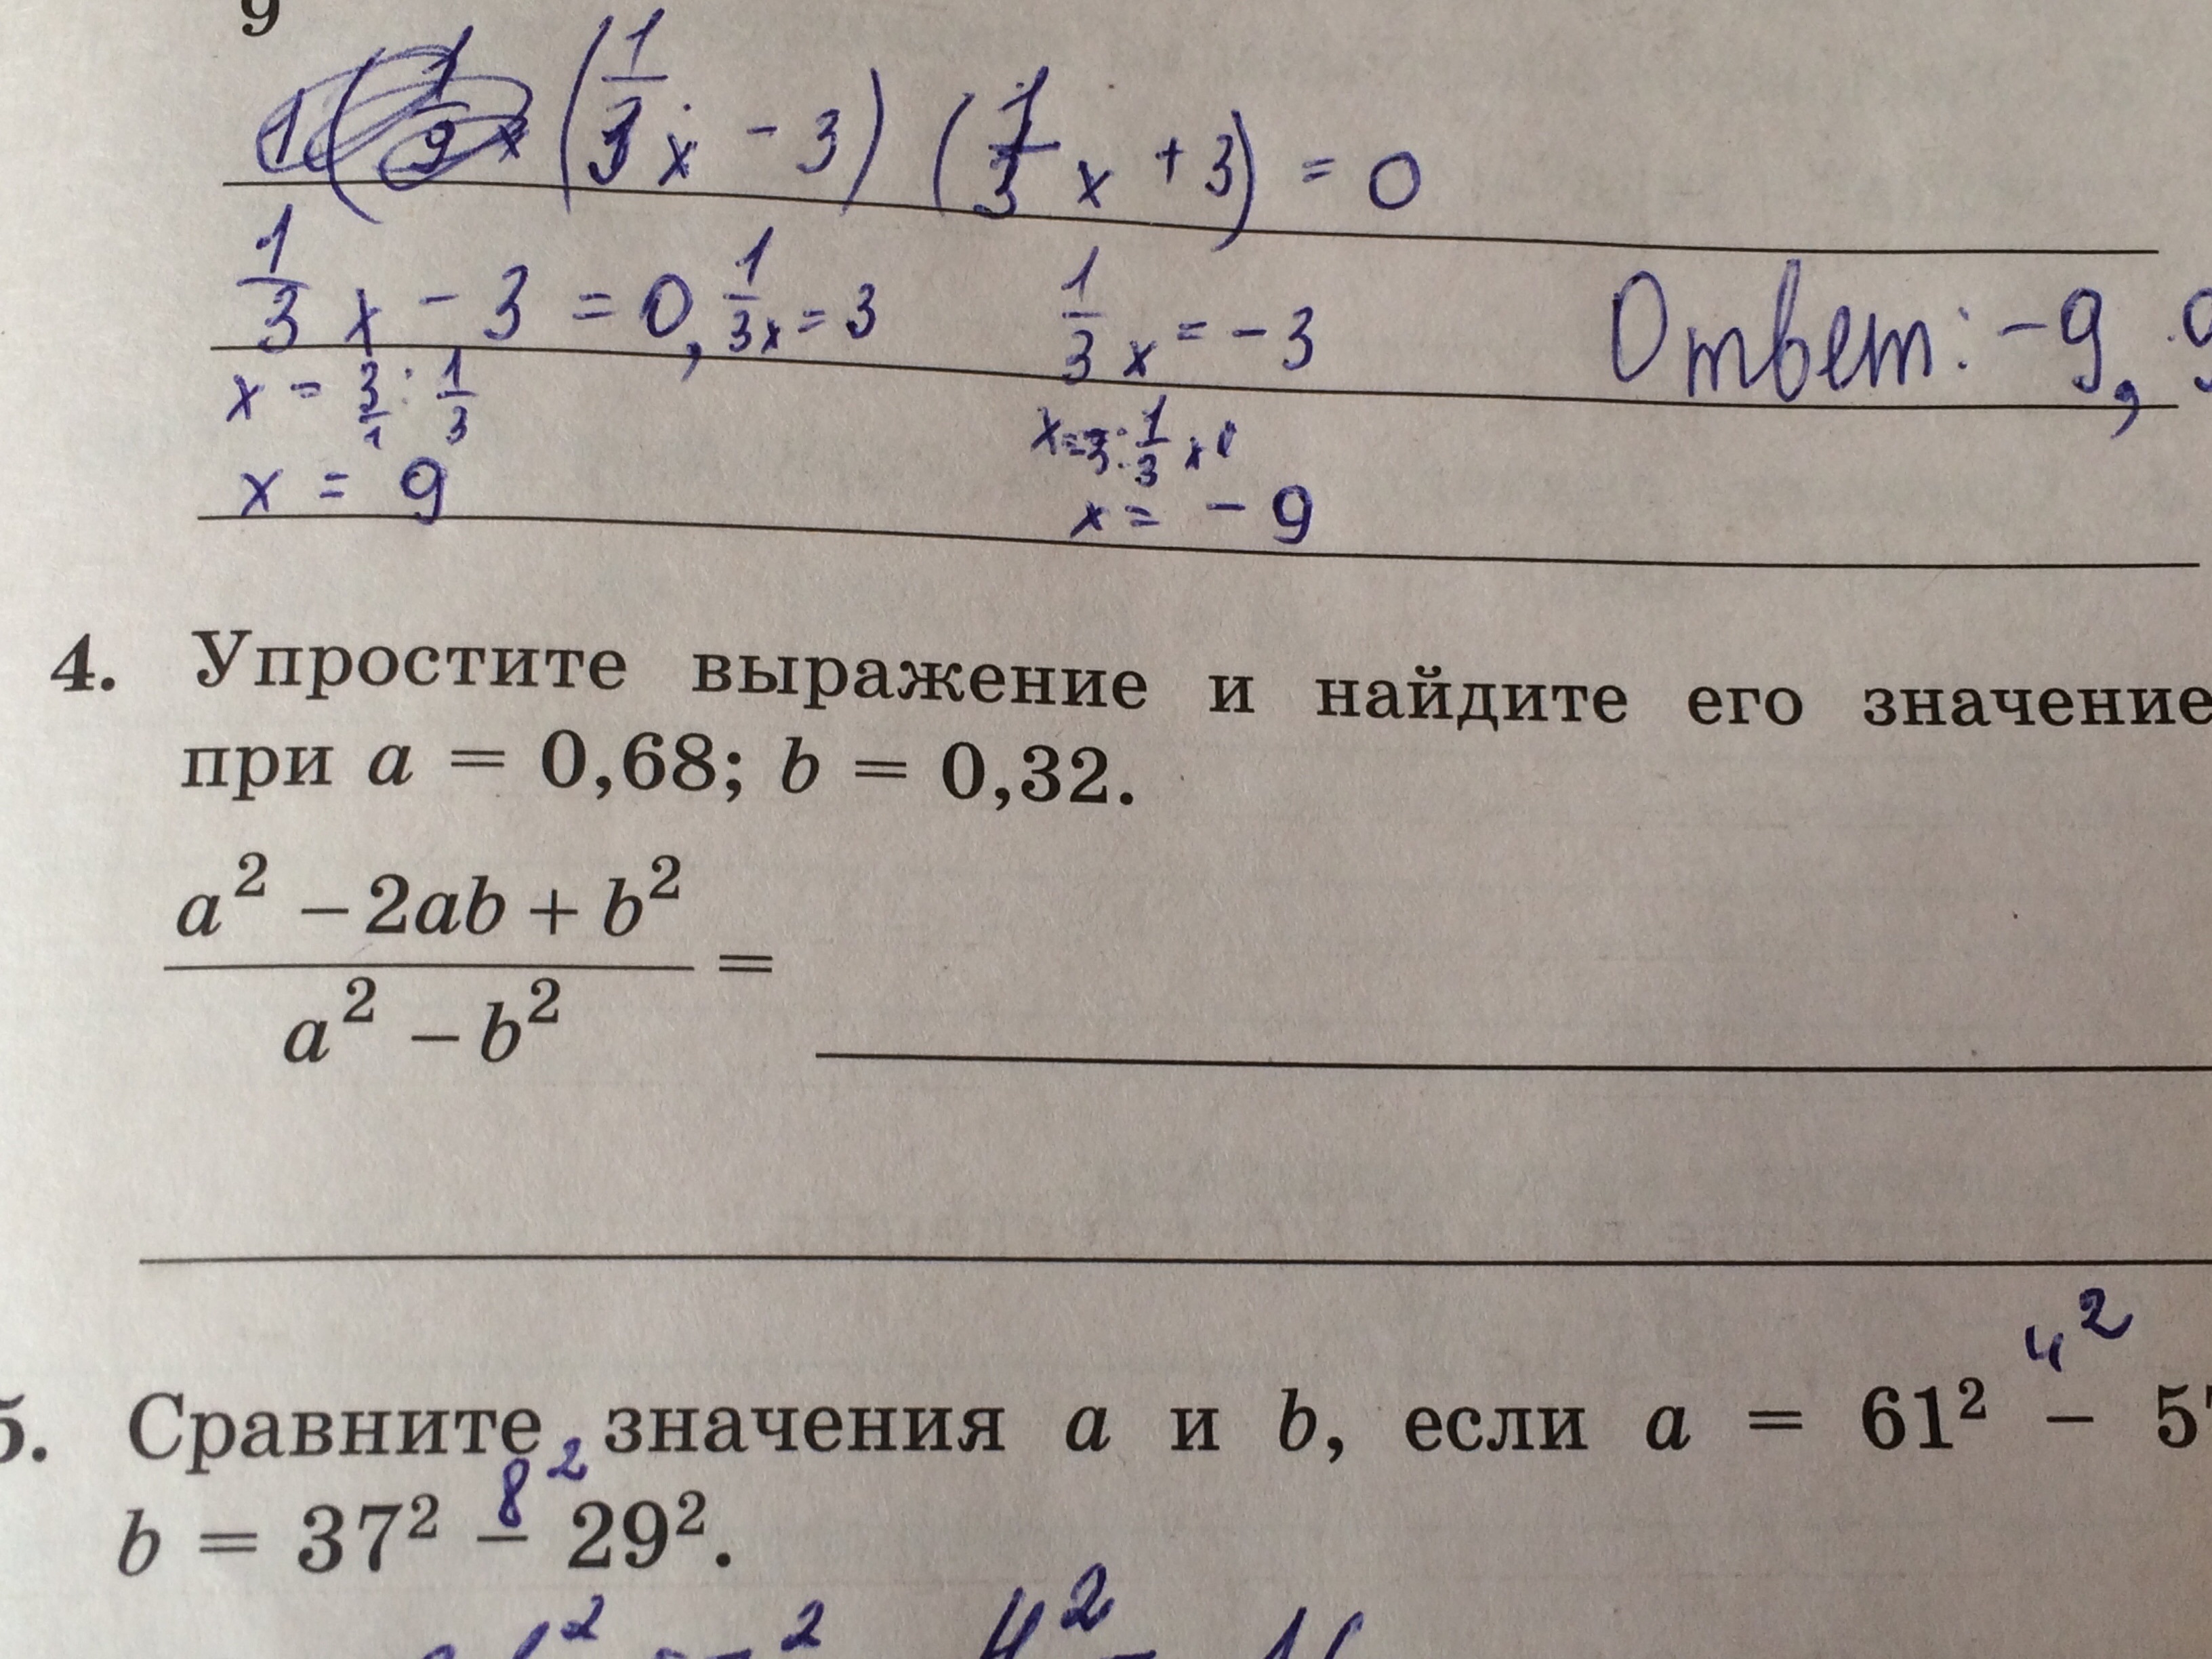 9
(1/3 x - 3) (1/3 x + 3) = 0
1/3 x - 3 = 0, 1/3 x = 3 1/3 x = - 3 Ответ: -9, 9
x = 3/1 : 1/3 x = -3 : 1/3
x = 9 x = - 9
4. Упростите выражение и найдите его значение
при a = 0,68; b = 0,32.
(a² - 2ab + b²)/(a² - b²) =
4²
5. Сравните значения a и b, если a = 61² - 5
8²
b = 37² - 29².
² ² 4²